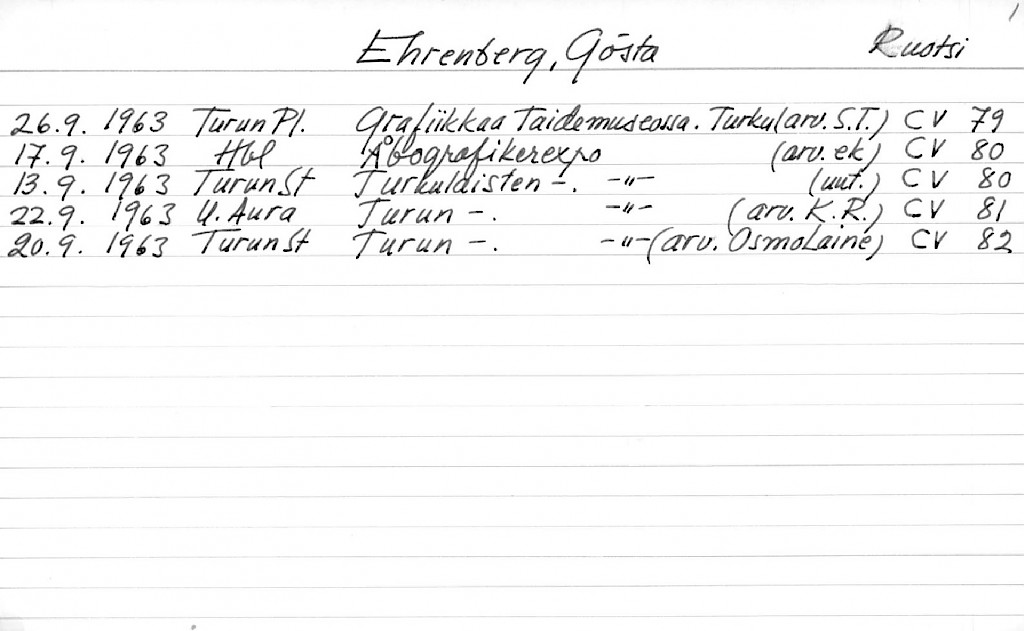 1
Ehrenberg, Gösta Ruotsi
26.9. 1963 Turun Pl. Grafiikkaa Taidemuseossa. Turku (arv. S.T.) CV 79
17.9. 1963 Hbl Åbografikerexpo (arv. ek) CV 80
13.9. 1963 Turun St Turkulaisten -. -"- (uut.) CV 80
22.9. 1963 U. Aura Turun -. -"- (arv. K.R.) CV 81
20.9. 1963 Turun St Turun -. -"- (arv. Osmo Laine) CV 82